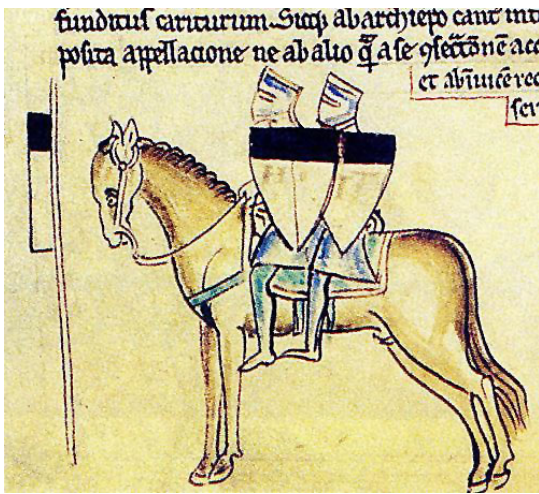 funditus cariturum. Sicq; ab archiepo cant int
posita appellacione ne ab alio q̄ a se
et abīuicē rec